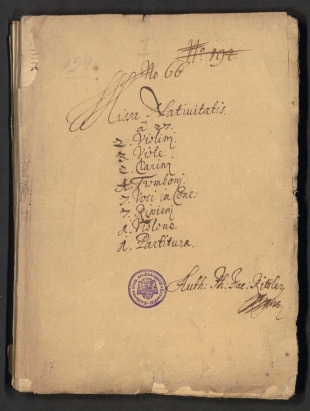 No 191.
No 66
Missa Nativitatis.
à 27.
2. Violini
3. Viole
2. Clarini
4. Tromboni
7. Voci in Conc:
7. Ripieni
1. Violone
1. Partitura.
Auth: Ph: Jac: Rittler